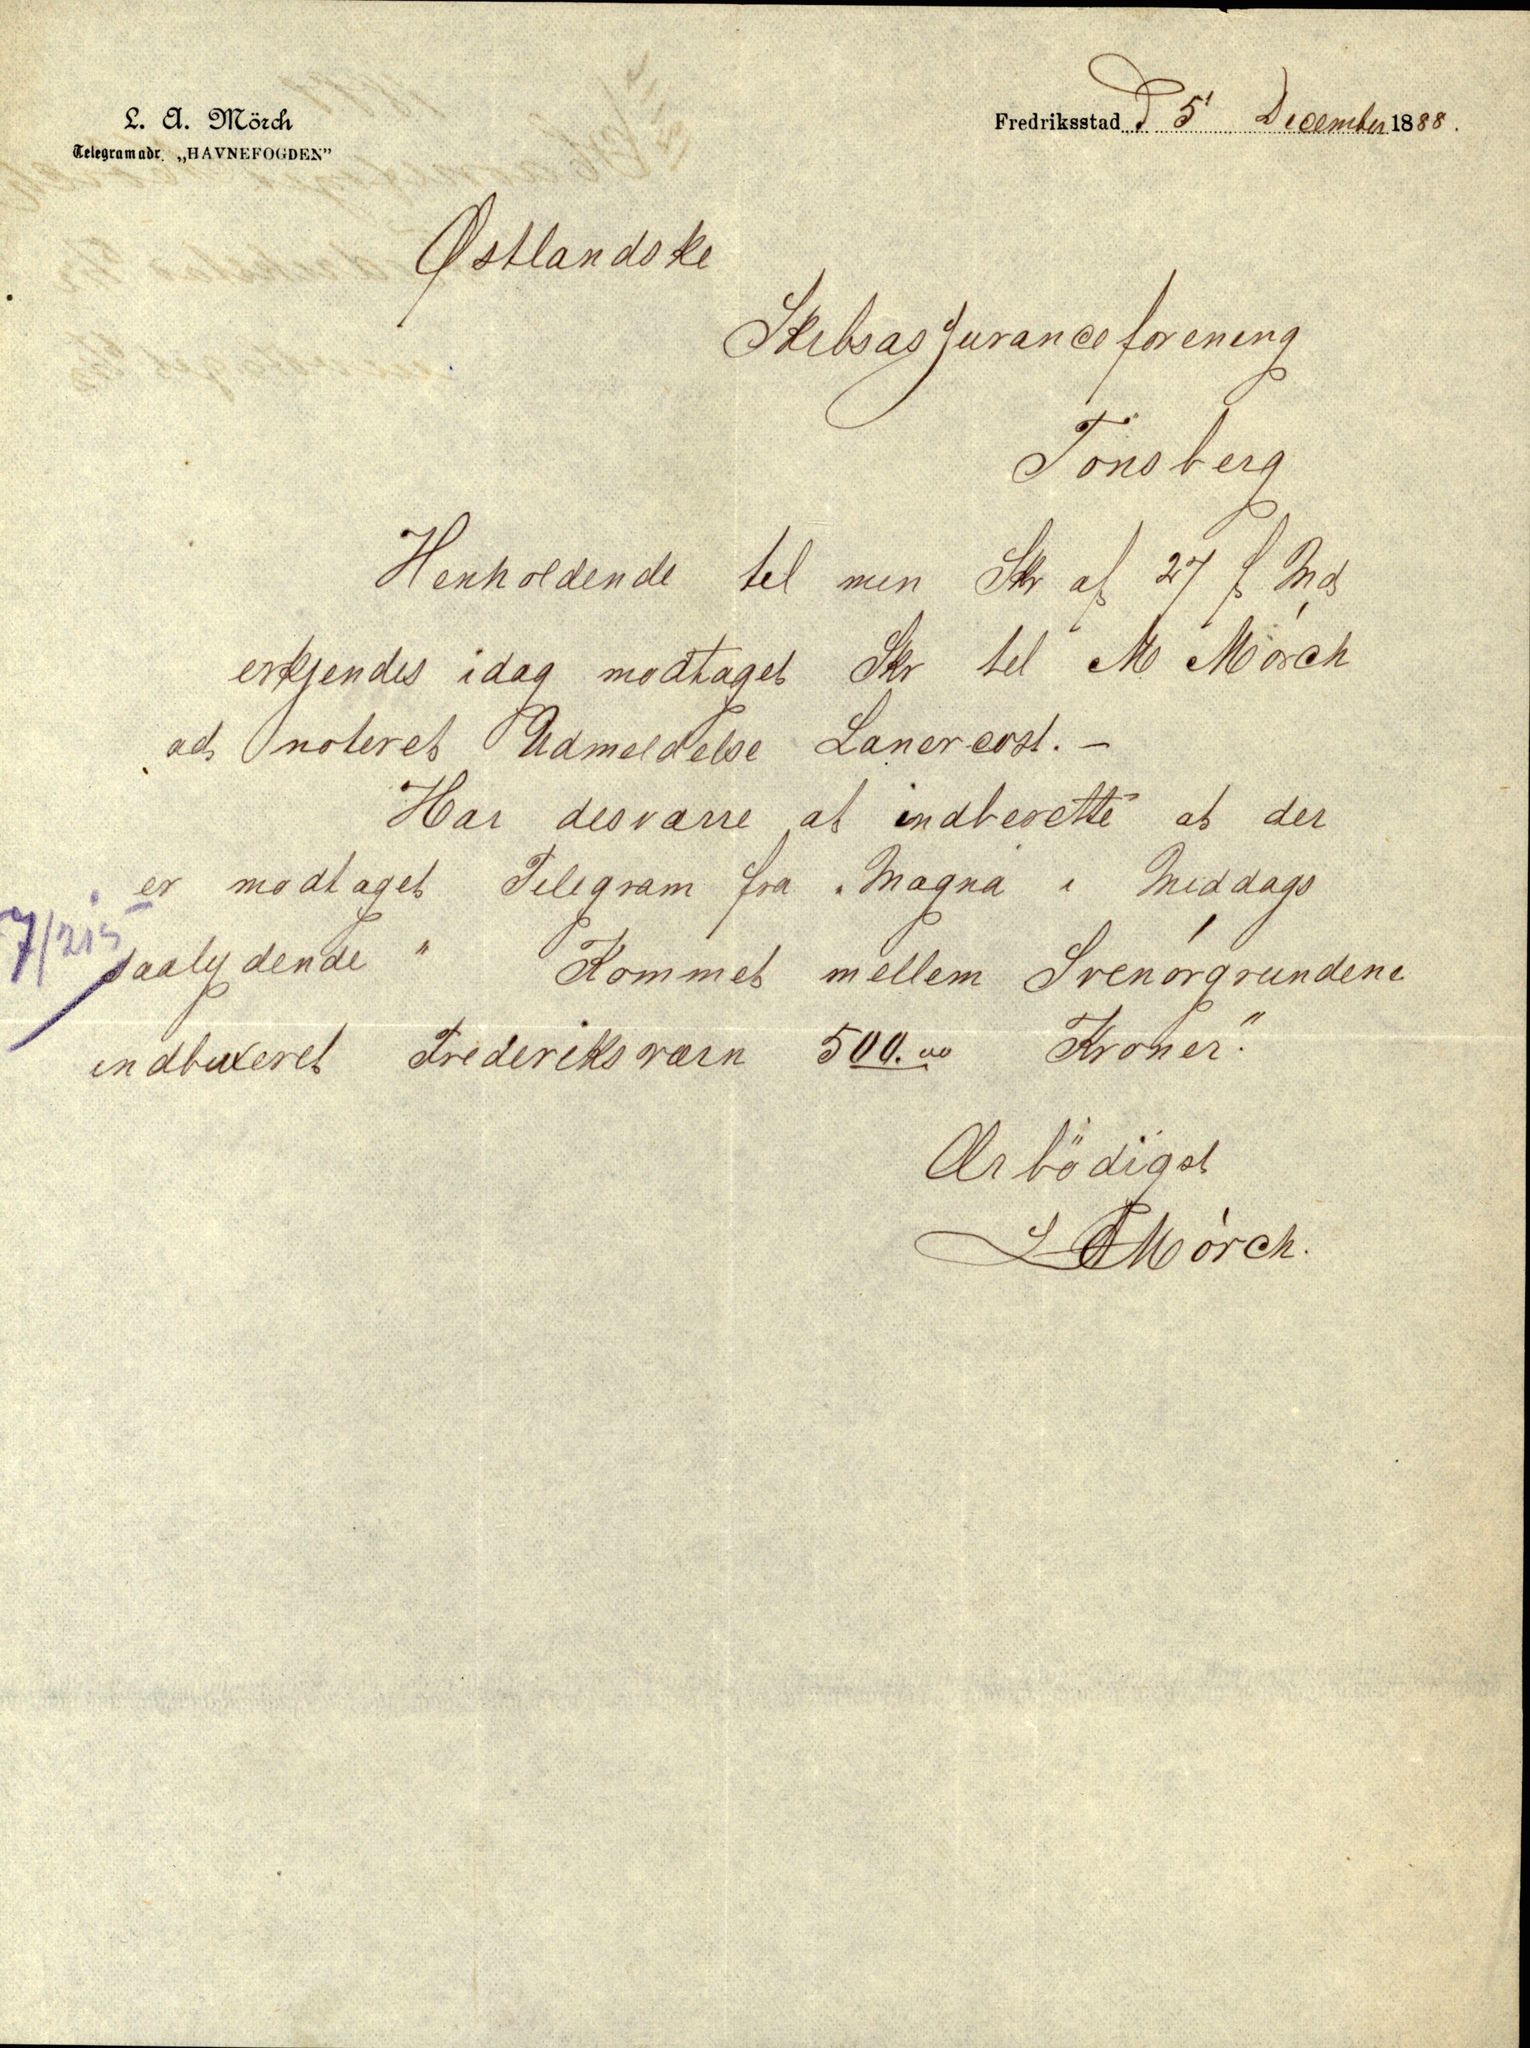 L. A. Mörch
Telegramadr. „HAVNEFOGDEN”
Fredriksstad d 5' December 1888.
Østlandske
Skibsassuranceforening
Tönsberg
Henholdende til min Skr af 27 f Md
erkjendes idag modtaget Skr til M Mörch
at noteret Udmeldelse Lanercost. –
Har desværre at indberette at der
er modtaget Telegram fra "Magna" i Middags
saalydende " Kommet mellem Svenörgrundene
indbuxeret Frederiksværn 500.00 Kroner."
Ærbödigst
L A Mörch.